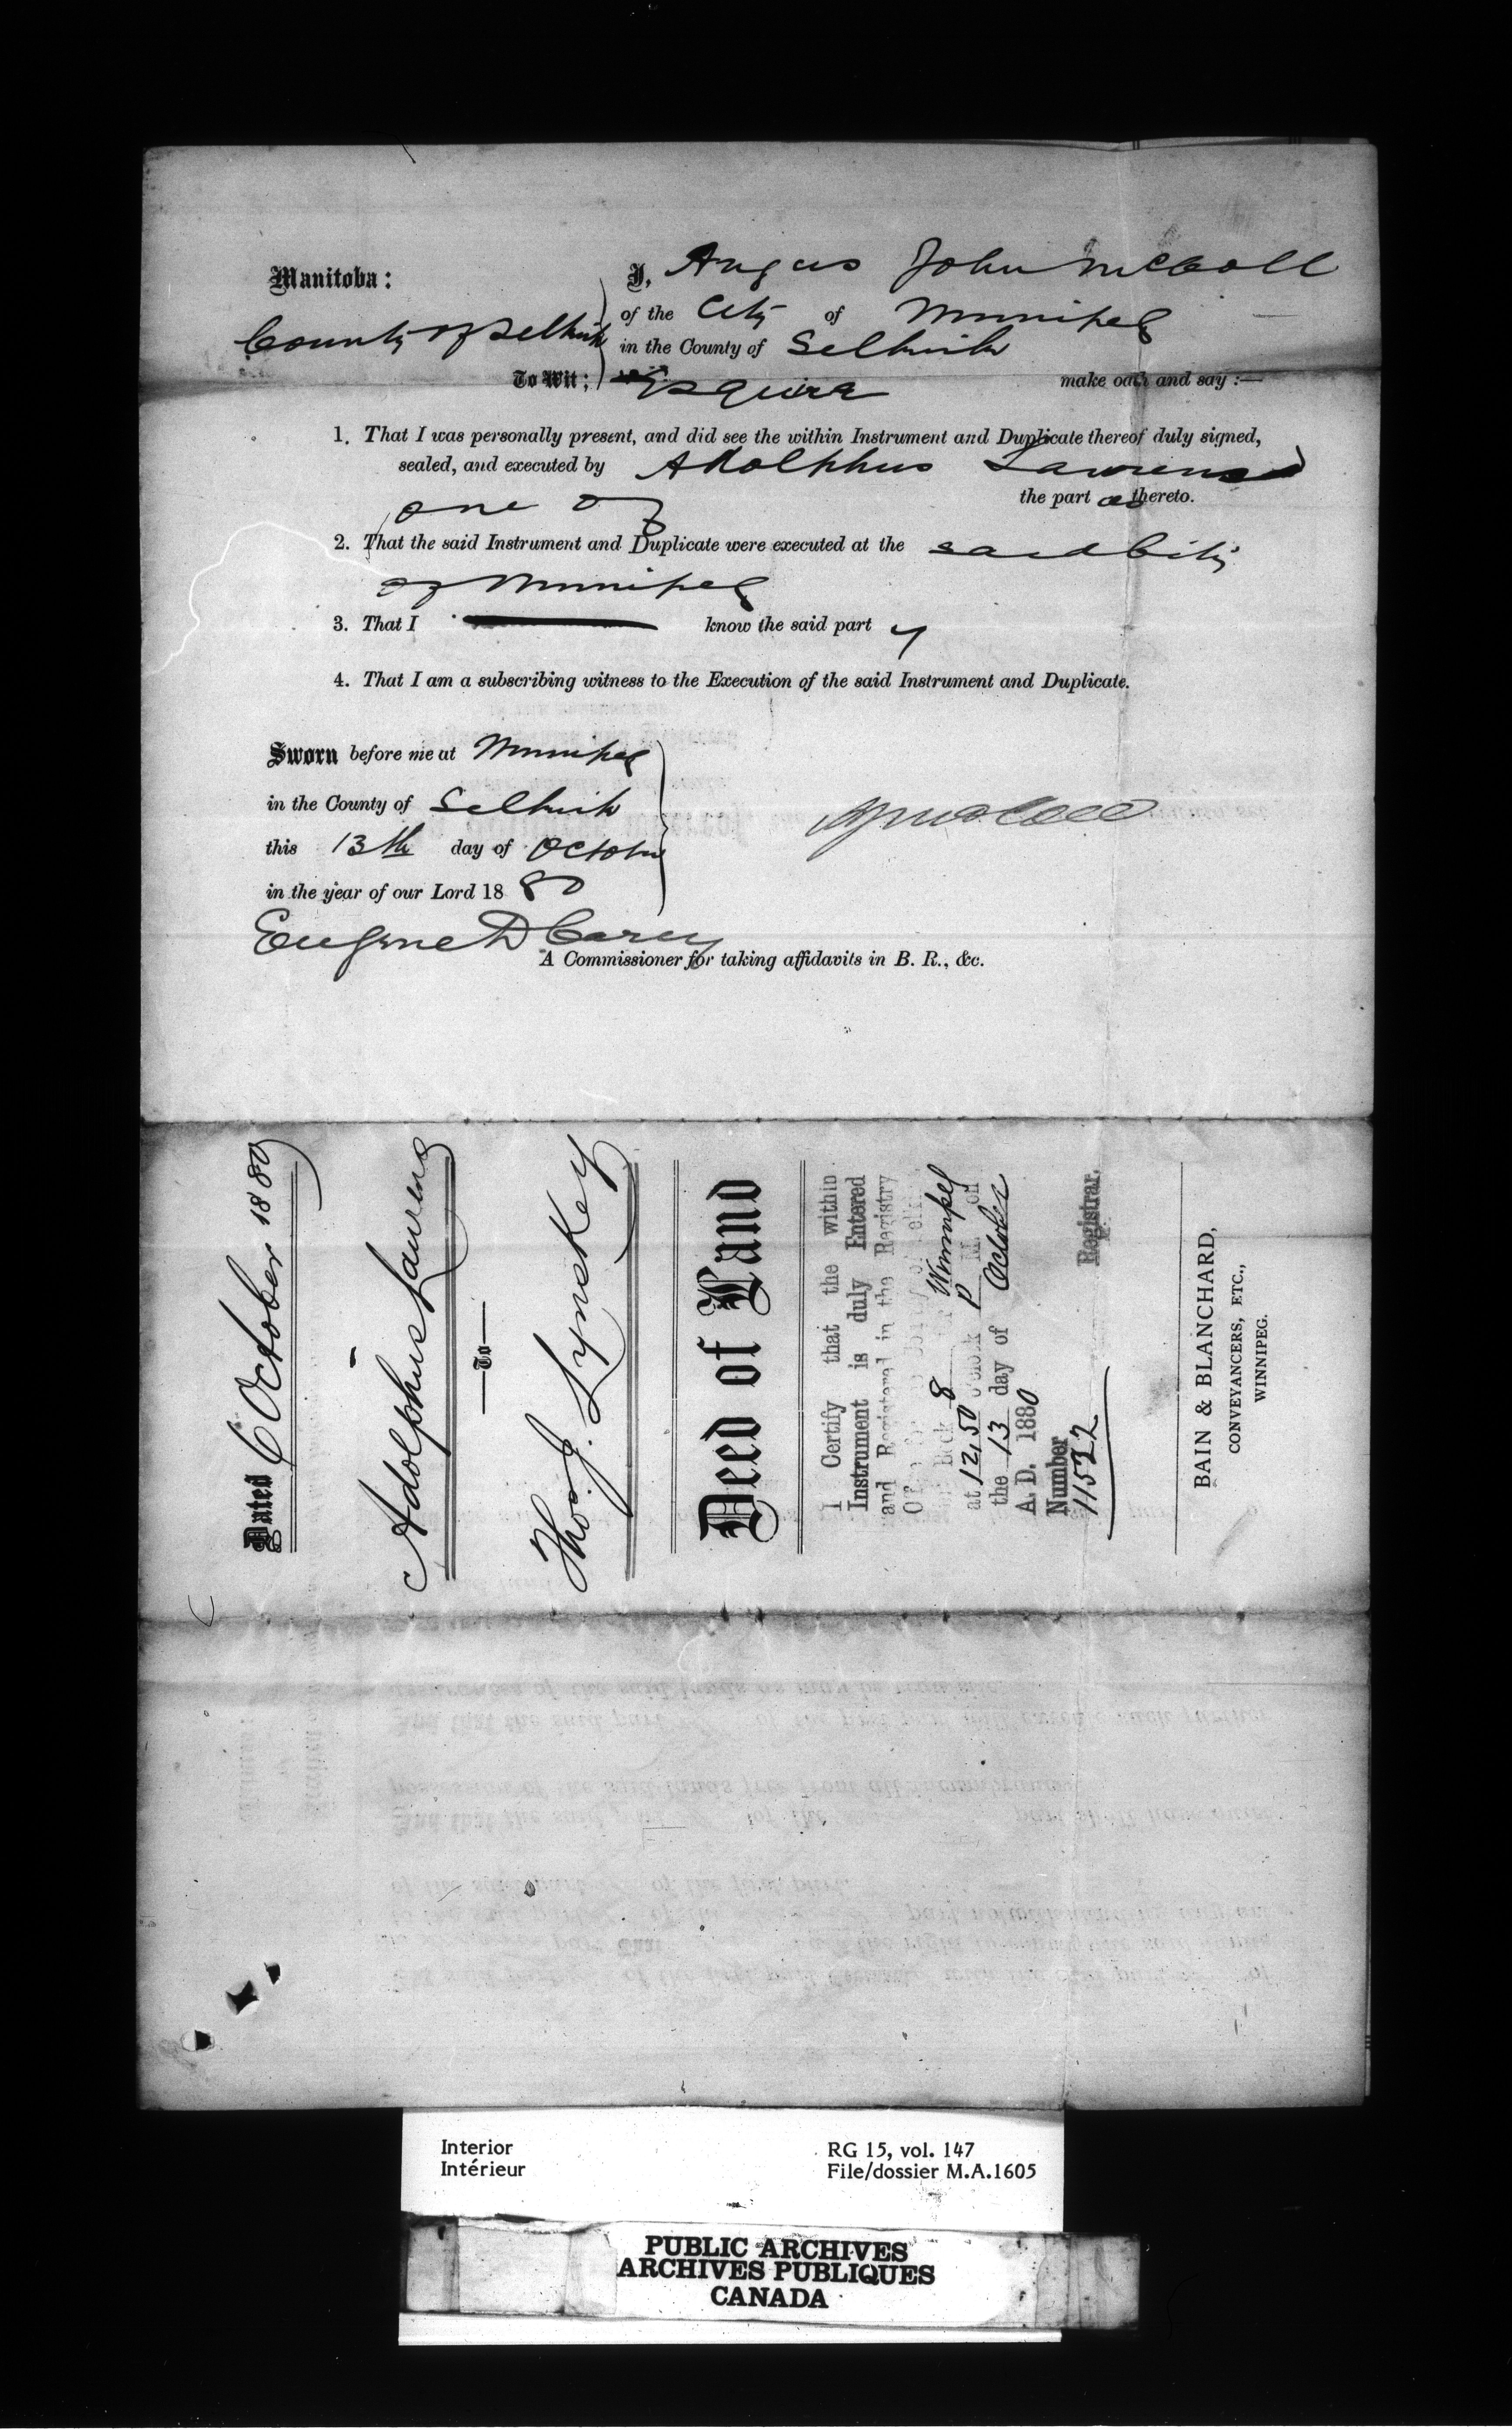 Manitoba:
County of Selkirk
To Wit;
I, Angus John McColl
of the City of Winnipeg
in the County of Selkirk
Esquire make oath and say :—
1. That I was personally present, and did see the within Instrument and Duplicate thereof duly signed,
sealed, and executed by Adolphus Laurens
one of the part es thereto.
2. That the said Instrument and Duplicate were executed at the said City
of Winnipeg
3. That I know the said part y
4. That I am a subscribing witness to the Execution of the said Instrument and Duplicate.
Sworn before me at Winnipeg
in the County of Selkirk
this 13th day of October
in the year of our Lord 18 80
AJMcColl
Eugene D Carey
A Commissioner for taking affidavits in B. R., &c.
Dated October 1880
Adolphus Laurens
—To—
Thos. J. Lynskey
Deed of Land
I Certify that the within
Instrument is duly Entered
and Registered in the Registry
Book 8 Winnipeg
at 12,50 o'clock P M on
the 13 day of October
A. D. 1880
Number
11522
Registrar.
BAIN & BLANCHARD,
CONVEYANCERS, ETC.,
WINNIPEG.
Interior
Intérieur
RG 15, vol. 147
File/dossier M.A.1605
PUBLIC ARCHIVES
ARCHIVES PUBLIQUES
CANADA